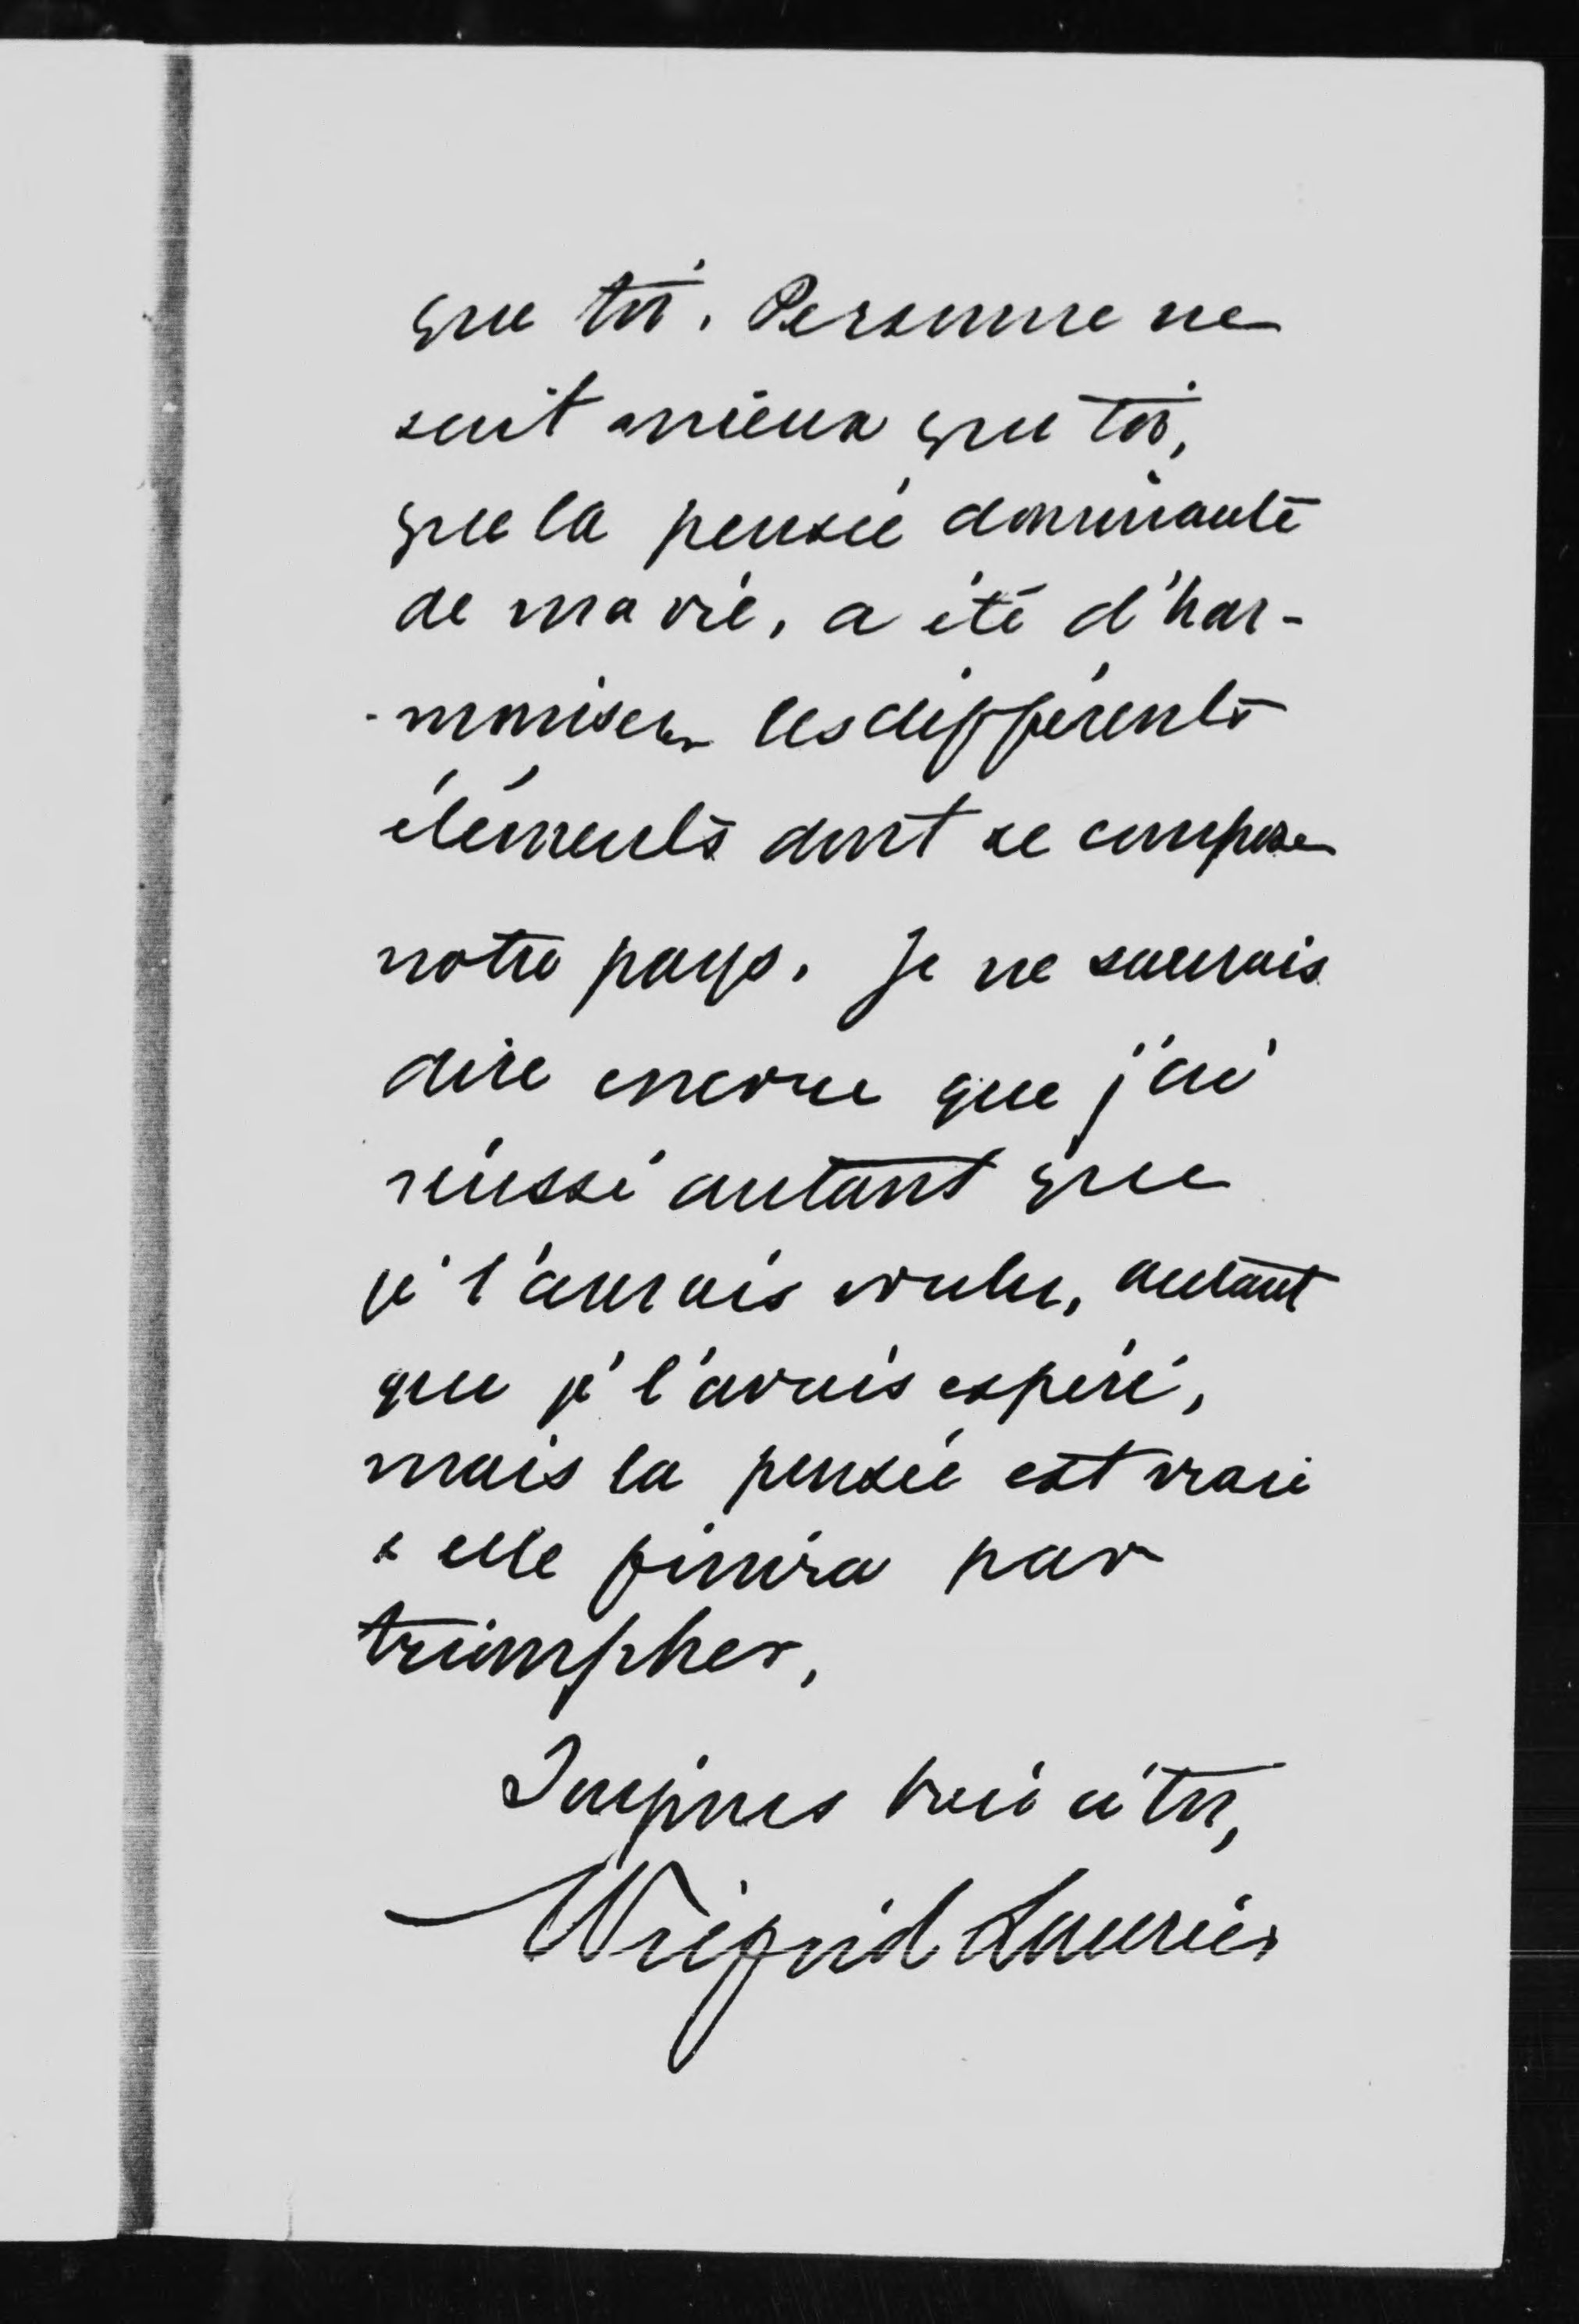 que toi. Personne ne
sait mieux que toi,
que la pensée dominante
de ma vie, a été d'har-
-moniser les différents
éléments dont se compose
notre pays. Je ne saurais
dire encore que j'ai
réussi autant que
je l'aurais voulu, autant
que je l'avais espéré,
mais la pensée est vraie
& elle finira par
triompher.
Toujours tout à toi,
Wilfrid Laurier